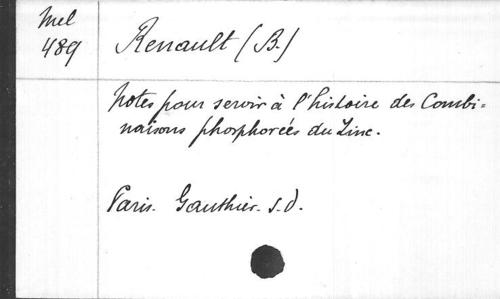 Mel
489
Renault (B.)
Notes pour servir à l'histoire des Combi=
naisons phosphorées du Zinc.
Paris. Gauthier. s.d.